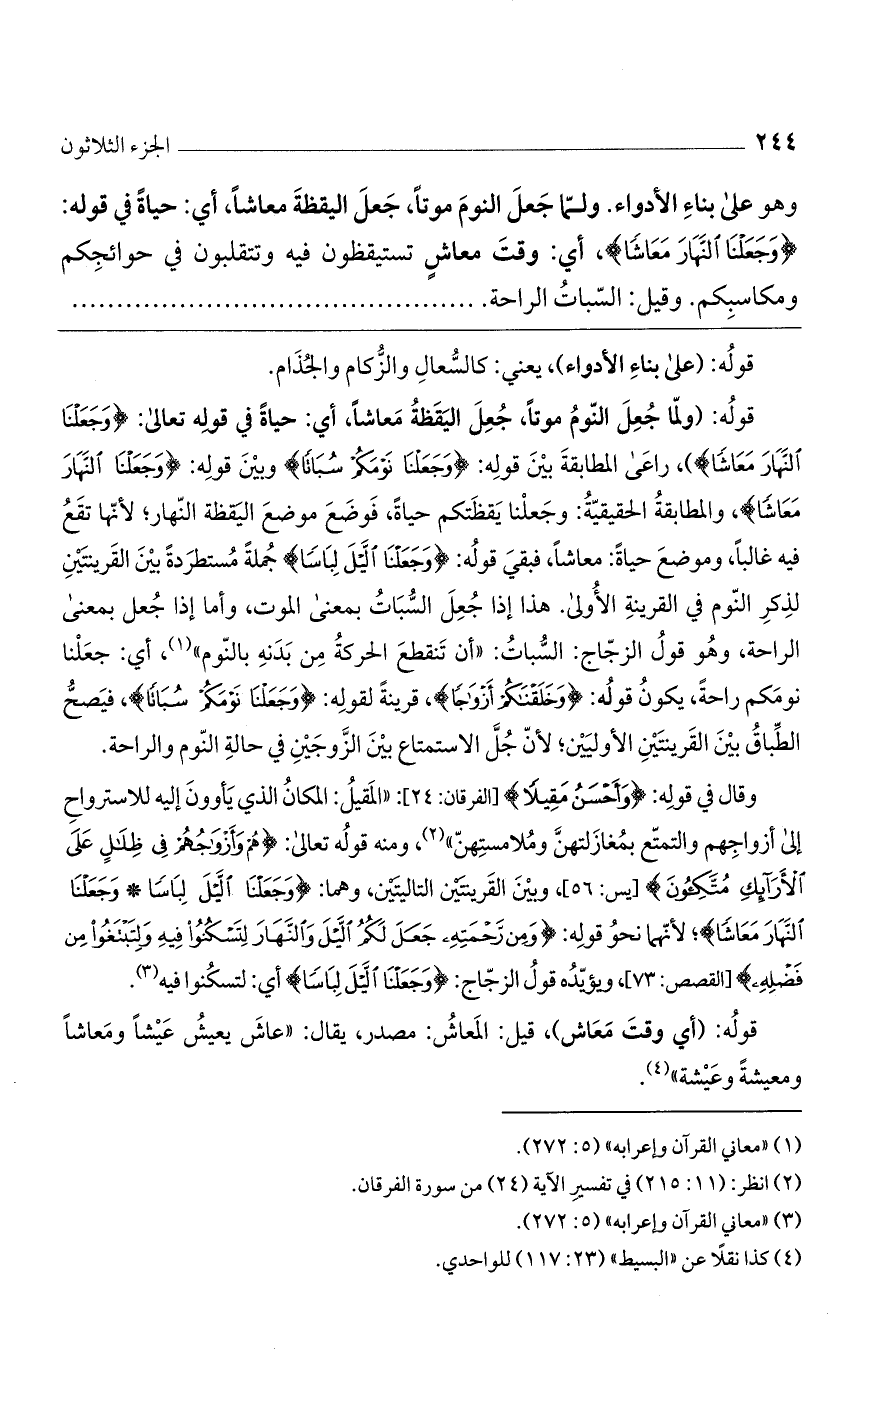 ٢٤٤ الجزء الثلاثون
وهو على بناءِ الأدواء. ولـمّا جَعلَ النومَ موتاً، جَعلَ اليقظةَ معاشاً، أي: حياةً في قوله:
﴿وَجَعَلْنَا ٱلنَّهَارَ مَعَاشًا﴾، أي: وقتَ معاشٍ تستيقظون فيه وتتقلبون في حوائجِكم
ومكاسبِكم. وقيل: السّباتُ الراحة. ............................................
قولُه: (على بناءِ الأدواء)، يعني: كالسُّعالِ والزُّكام والجُذَام.
قولُه: (ولمّا جُعِلَ النّومُ موتاً، جُعِلَ اليَقظَةُ مَعاشاً، أي: حياةً في قولِه تعالى: ﴿وَجَعَلْنَا
ٱلنَّهَارَ مَعَاشًا﴾)، راعَى المطابقةَ بيْنَ قولِه: ﴿وَجَعَلْنَا نَوْمَكُمْ سُبَاتًا﴾ وبيْنَ قولِه: ﴿وَجَعَلْنَا ٱلنَّهَارَ
مَعَاشًا﴾، والمطابقةُ الحقيقيّةُ: وجَعلْنا يَقظَتَكم حياةً، فَوضَعَ موضعَ اليَقظة النّهار؛ لأنّها تقَعُ
فيه غالباً، وموضعَ حياةً: معاشاً، فبقيَ قولُه: ﴿وَجَعَلْنَا ٱلَّيْلَ لِبَاسًا﴾ جُملةً مُستطرَدةً بيْنَ القَرينتَيْنِ
لذِكرِ النّوم في القرينةِ الأُولى. هذا إذا جُعِلَ السُّبَاتُ بمعنى الموت، وأما إذا جُعل بمعنى
الراحة، وهُو قولُ الزجّاج: السُّباتُ: «أن تَنقطعَ الحركةُ مِن بَدَنهِ بالنّوم»(١)، أي: جعَلْنا
نومَكم راحةً، يكونُ قولُه: ﴿وَخَلَقْنَٰكُمْ أَزْوَٰجًا﴾، قرينةً لقولِه: ﴿وَجَعَلْنَا نَوْمَكُمْ سُبَاتًا﴾، فيَصحُّ
الطِّباقُ بيْنَ القَرينتَيْنِ الأوليَيْن؛ لأنّ جُلَّ الاستمتاع بيْنَ الزَّوجَيْنِ في حالةِ النّوم والراحة.
وقال في قولِه: ﴿وَأَحْسَنُ مَقِيلًا﴾ [الفرقان: ٢٤]: «المَقيلُ: المكانُ الذي يَأوونَ إليه للاسترواحِ
إلى أزواجِهم والتمتّع بمُغازَلتهنَّ ومُلامستِهنّ»(٢)، ومنه قولُه تعالى: ﴿هُمْ وَأَزْوَٰجُهُمْ فِى ظِلَٰلٍ عَلَى
ٱلْأَرَآئِكِ مُتَّكِـُٔونَ﴾ [يس: ٥٦]، وبيْنَ القَرينتَيْن التاليتَيْن، وهما: ﴿وَجَعَلْنَا ٱلَّيْلَ لِبَاسًا * وَجَعَلْنَا
ٱلنَّهَارَ مَعَاشًا﴾؛ لأنّهما نحوُ قولِه: ﴿وَمِن رَّحْمَتِهِۦ جَعَلَ لَكُمُ ٱلَّيْلَ وَٱلنَّهَارَ لِتَسْكُنُوا۟ فِيهِ وَلِتَبْتَغُوا۟ مِن
فَضْلِهِۦ﴾ [القصص: ٧٣]، ويؤيّدُه قولُ الزجّاج: ﴿وَجَعَلْنَا ٱلَّيْلَ لِبَاسًا﴾ أي: لتسكُنوا فيه(٣).
قولُه: (أي وقتَ مَعَاش)، قيل: المَعاشُ: مصدر، يقال: «عاشَ يعيشُ عَيْشاً ومَعاشاً
ومعيشةً وعَيْشة»(٤).
(١) «معاني القرآن وإعرابه» (٥: ٢٧٢).
(٢) انظر: (١١: ٢١٥) في تفسيرِ الآية (٢٤) من سورة الفرقان.
(٣) «معاني القرآن وإعرابه» (٥: ٢٧٢).
(٤) كذا نقلًا عن «البسيط» (٢٣: ١١٧) للواحدي.